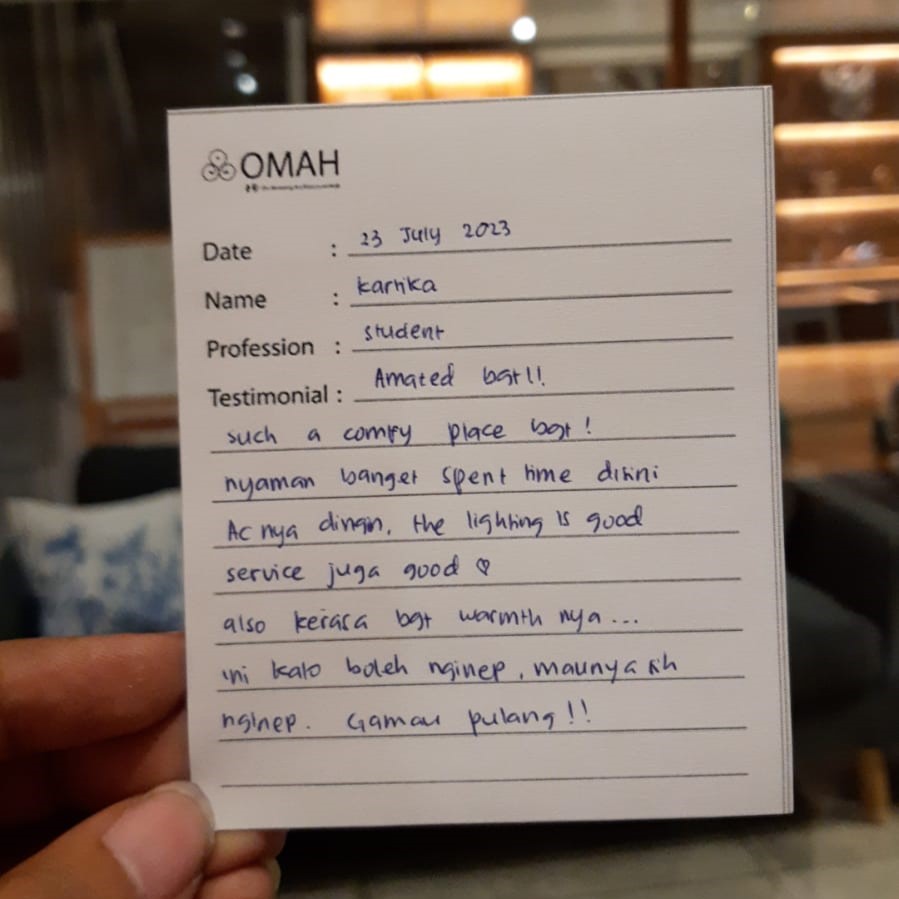 OMAH
Date : 23 July 2023
Name : kartika
Profession : student
Testimonial : Amazed bgt!!
such a comfy place bgt!
nyaman banget spent time disini
Ac nya dingin, the lighting is good
service juga good ♡
also kerasa bgt warmth nya...
ini kalo boleh nginep, maunya sih
nginep. Gamau pulang!!